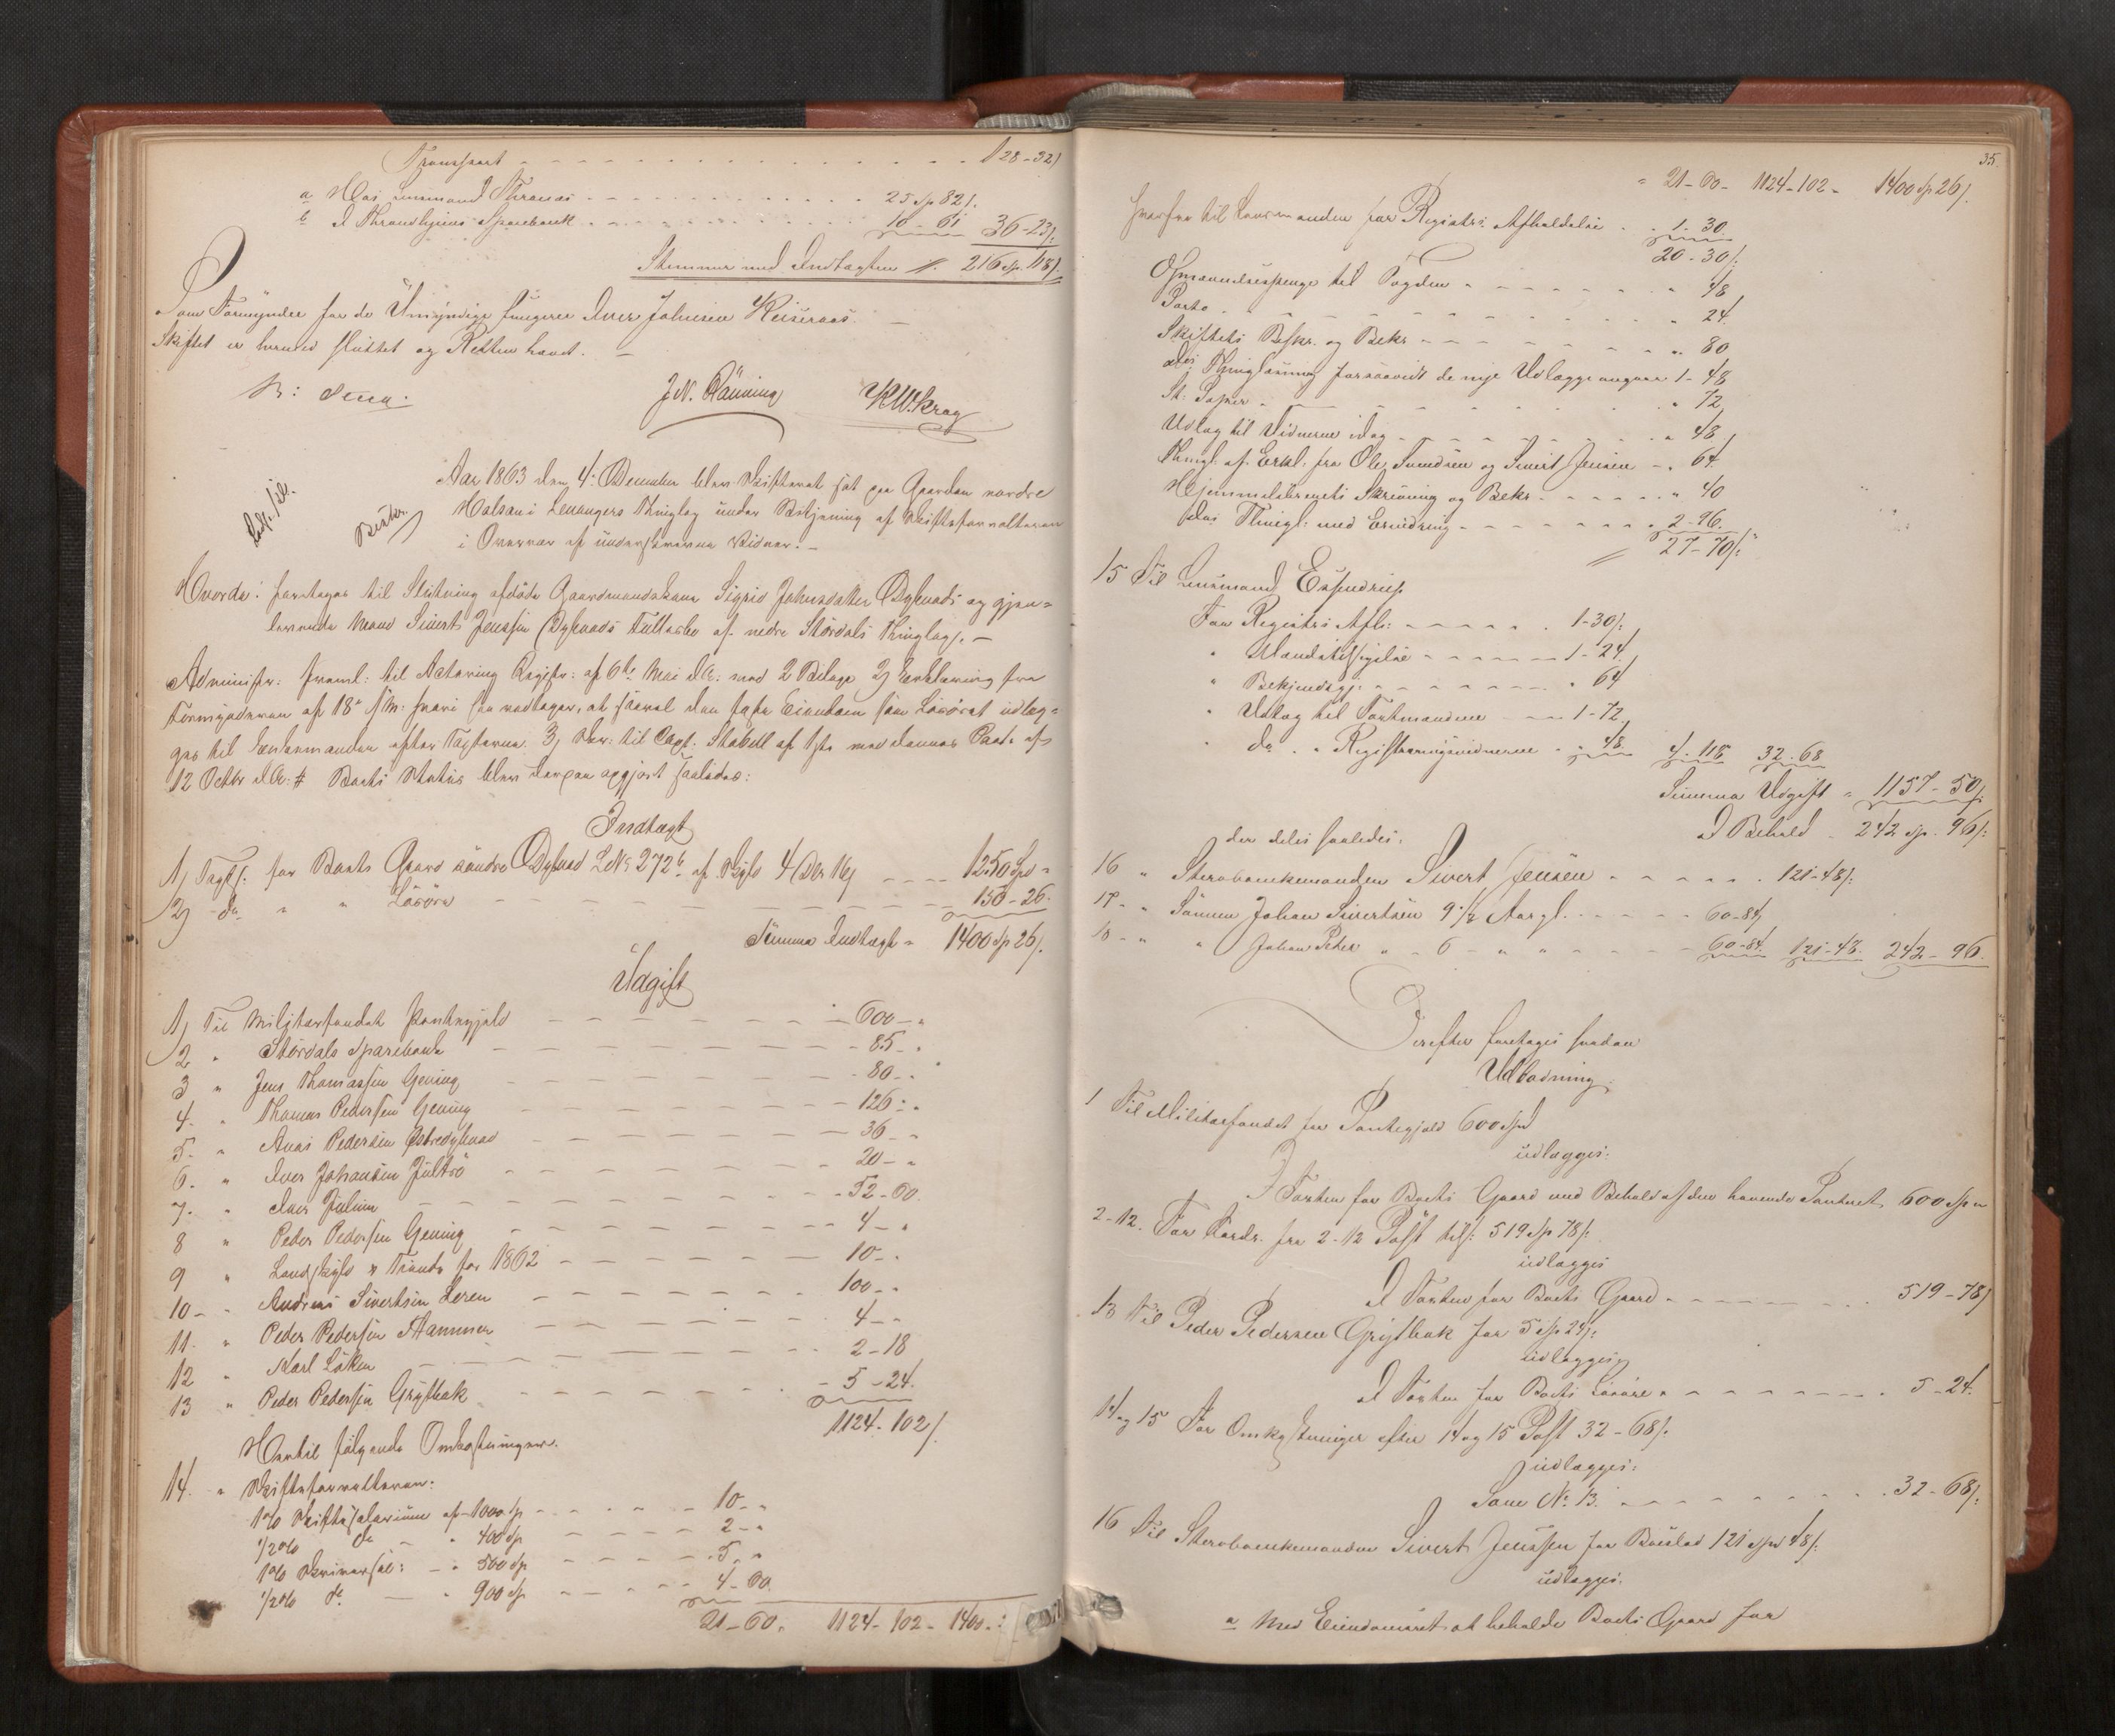 Transport - - - 128-32/
a Hos Lensmand Thranæs - - - 25 Sp 82/.
b I Throndhjems Sparebank - - - 10 - 61 36-23/.
Stemmer med Indtægten //. 216 Sp. 118/.
Som Formynder for de Umyndige fungerer Iver Johnsen
Skiftet er hermed sluttet og Retten hævet. -
J. N. Rönning K W. Krag
Aar 1863 den 4: December blev Skifteret sat paa Gaarden nordre
Halsan i Levangers Thinglag under Betjening af Skifteforvalteren
i Overvær af underskrevne Vidner. -
Beskr.
Hvorda: foretoges til Slutning afdøde Gaardmandskone Sigrid Johnsdatter Dybvads og gjen=
levende Mand Sivert Jenssen Dybvads Fællesbo af nedre Stördals Thinglag. -
Administr: freml: til Actering Registr: af 6te Mai d.A. med 2 Bilage 2) Erklæring fra
Formynderen af 18de f.M: hvori han vedtager, at saavel den faste Eiendom som Løsøret udlæg=
ges til Enkemanden efter Taxterne. 3) Skr: til Capt. Stabell af 1ste med dennes Paat. af
12 Octbr d.A: # Boets Status blev derpaa opgjort saaledes:
Indtægt
1) Taxts: for Boets Gaard söndre Dybvad LNo 272b af Skyld 4 Dlr 16/ - - - 1250 Spd "
2) do " " Lösöre - - - 150 - 26.
Summa Indtægt " 1400 Sp 26/.
Udgift
1) Til Militærfondet Pantegjæld - - - 600 - "
2 " Stördals Sparebank - - - 85 - "
3 " Jens Thomassen Gening - - - 80 - "
4. " Thomas Pedersen Gening - - - 126 - "
5. " Anas Pedersen Östredybvad - - - 36 - "
6. " Iver Johansen Jullsö - - - 20 - "
7. " Iver Julum - - - 52 - 60.
8 " Peder Pedersen Gening - - - 4 - "
9 " Landskyld & Tiende for 1862 - - - 10 - "
10 - " Andreas Sivertsen Leren - - - 100 - "
11. " Peder Pedersen Hammer - - - 4 - "
12 " Karl Löken - - - 2 - 18
13 " Peder Pedersen Grytbak - - - 5 - 24.
1124 - 102/.
Hertil følgende Omkostninger.
14. " Skifteforvalteren:
1% Skiftesalarium af 1000 Sp - - - 10 - "
1/2% do " 400 Sp - - - 2 - "
1% Skriversal: - " 500 Sp - - - 5 - "
1/2% do - " 900 Sp - - - 4 - 60.
21 - 60. 1124 - 102 - 1400.
35.
" 21 - 60 - 1124 - 102 - 1400 Sp 26/.
Herfra til Lensmanden for Registr: Afholdelse - " 1 - 30.
20 - 30/.
Opmændelsespenge til Fogden - - - " 48
Porto - - - " 24.
Skiftets Beskr. og Bekr - - - " 80
dets Thinglæsning forsaavidt de nye Udlægge angaar 1 - 48
St: Papir - - - " 72
Udlæg til Vidnerne idag - - - " 48
Thingl. af Erkl: fra Ole Svendsen og Sivert Jensen - " 64.
Hjemmelsbrevets Skrivning og Bekr - - - " 40
dets Thingl: med Erindring - - - 2 - 96.
// 27 - 70/.
15 Til Lensmand Essendrup
For Registrs Afh: - - - 1 - 30/.
" - - - 1 - 24.
" Bekjendtgj: - - - " 64
" Udlæg til Taxtmændene - - - 1 - 72
" do " Registreringsvidnerne " " 48. 4 - 118 32 - 68
Summa Udgift " 1157 - 50/.
I Behold - 242 Sp. 96/.
der deles saaledes:
16 " Stervboenkemanden Sivert Jensen - - - 121 - 48/.
17 - " Sönnen Johan Sivertsen 9 1/2 Aar gl. - - - 60 - 84
18 - " " Johan Peter " - 6 - " " - - - 60 - 84. 121 - 48. 242 - 96.
Derefter foretages saadan
Udlodning.
1 Til Militærfondet for Pantegjæld 600 Spd
udlægges:
I Taxten for Boets Gaard med Behold af den havende Panteret 600 Sp "
2 - 12. For Fordr. fra 2 - 12 Post tils: 519 Sp 78/.
udlægges
I Taxten for Boets Gaard - - - 519 - 78/
13 Til Peder Pedersen Grytbak for 5 Sp 24/.
udlægges
I Taxten for Boets Lösöre - - - 5 - 24.
14 og 15 For Omkostninger efter 14 og 15 Post 32 - 68/.
udlægges:
Som No 13. - - - 32 - 68/.
16 Til Stervboenkemanden Sivert Jenssen for Boeslod 121 Spd 48/.
udlægges.
a Med Eiendomsret at beholde Boets Gaard for